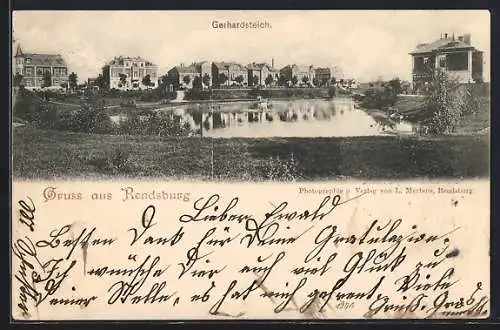 Gerhardsteich.
Gruss aus Rendsburg
Photographie u. Verlag von L. Martens, Rendsburg.
Lieber Ewald
Besten Dank für Deine Gratulazion,
Ich wünsche Dier auch viel Glück zu
Deiner Stelle, es hat mich gefreut. Viele
Grüße
1901